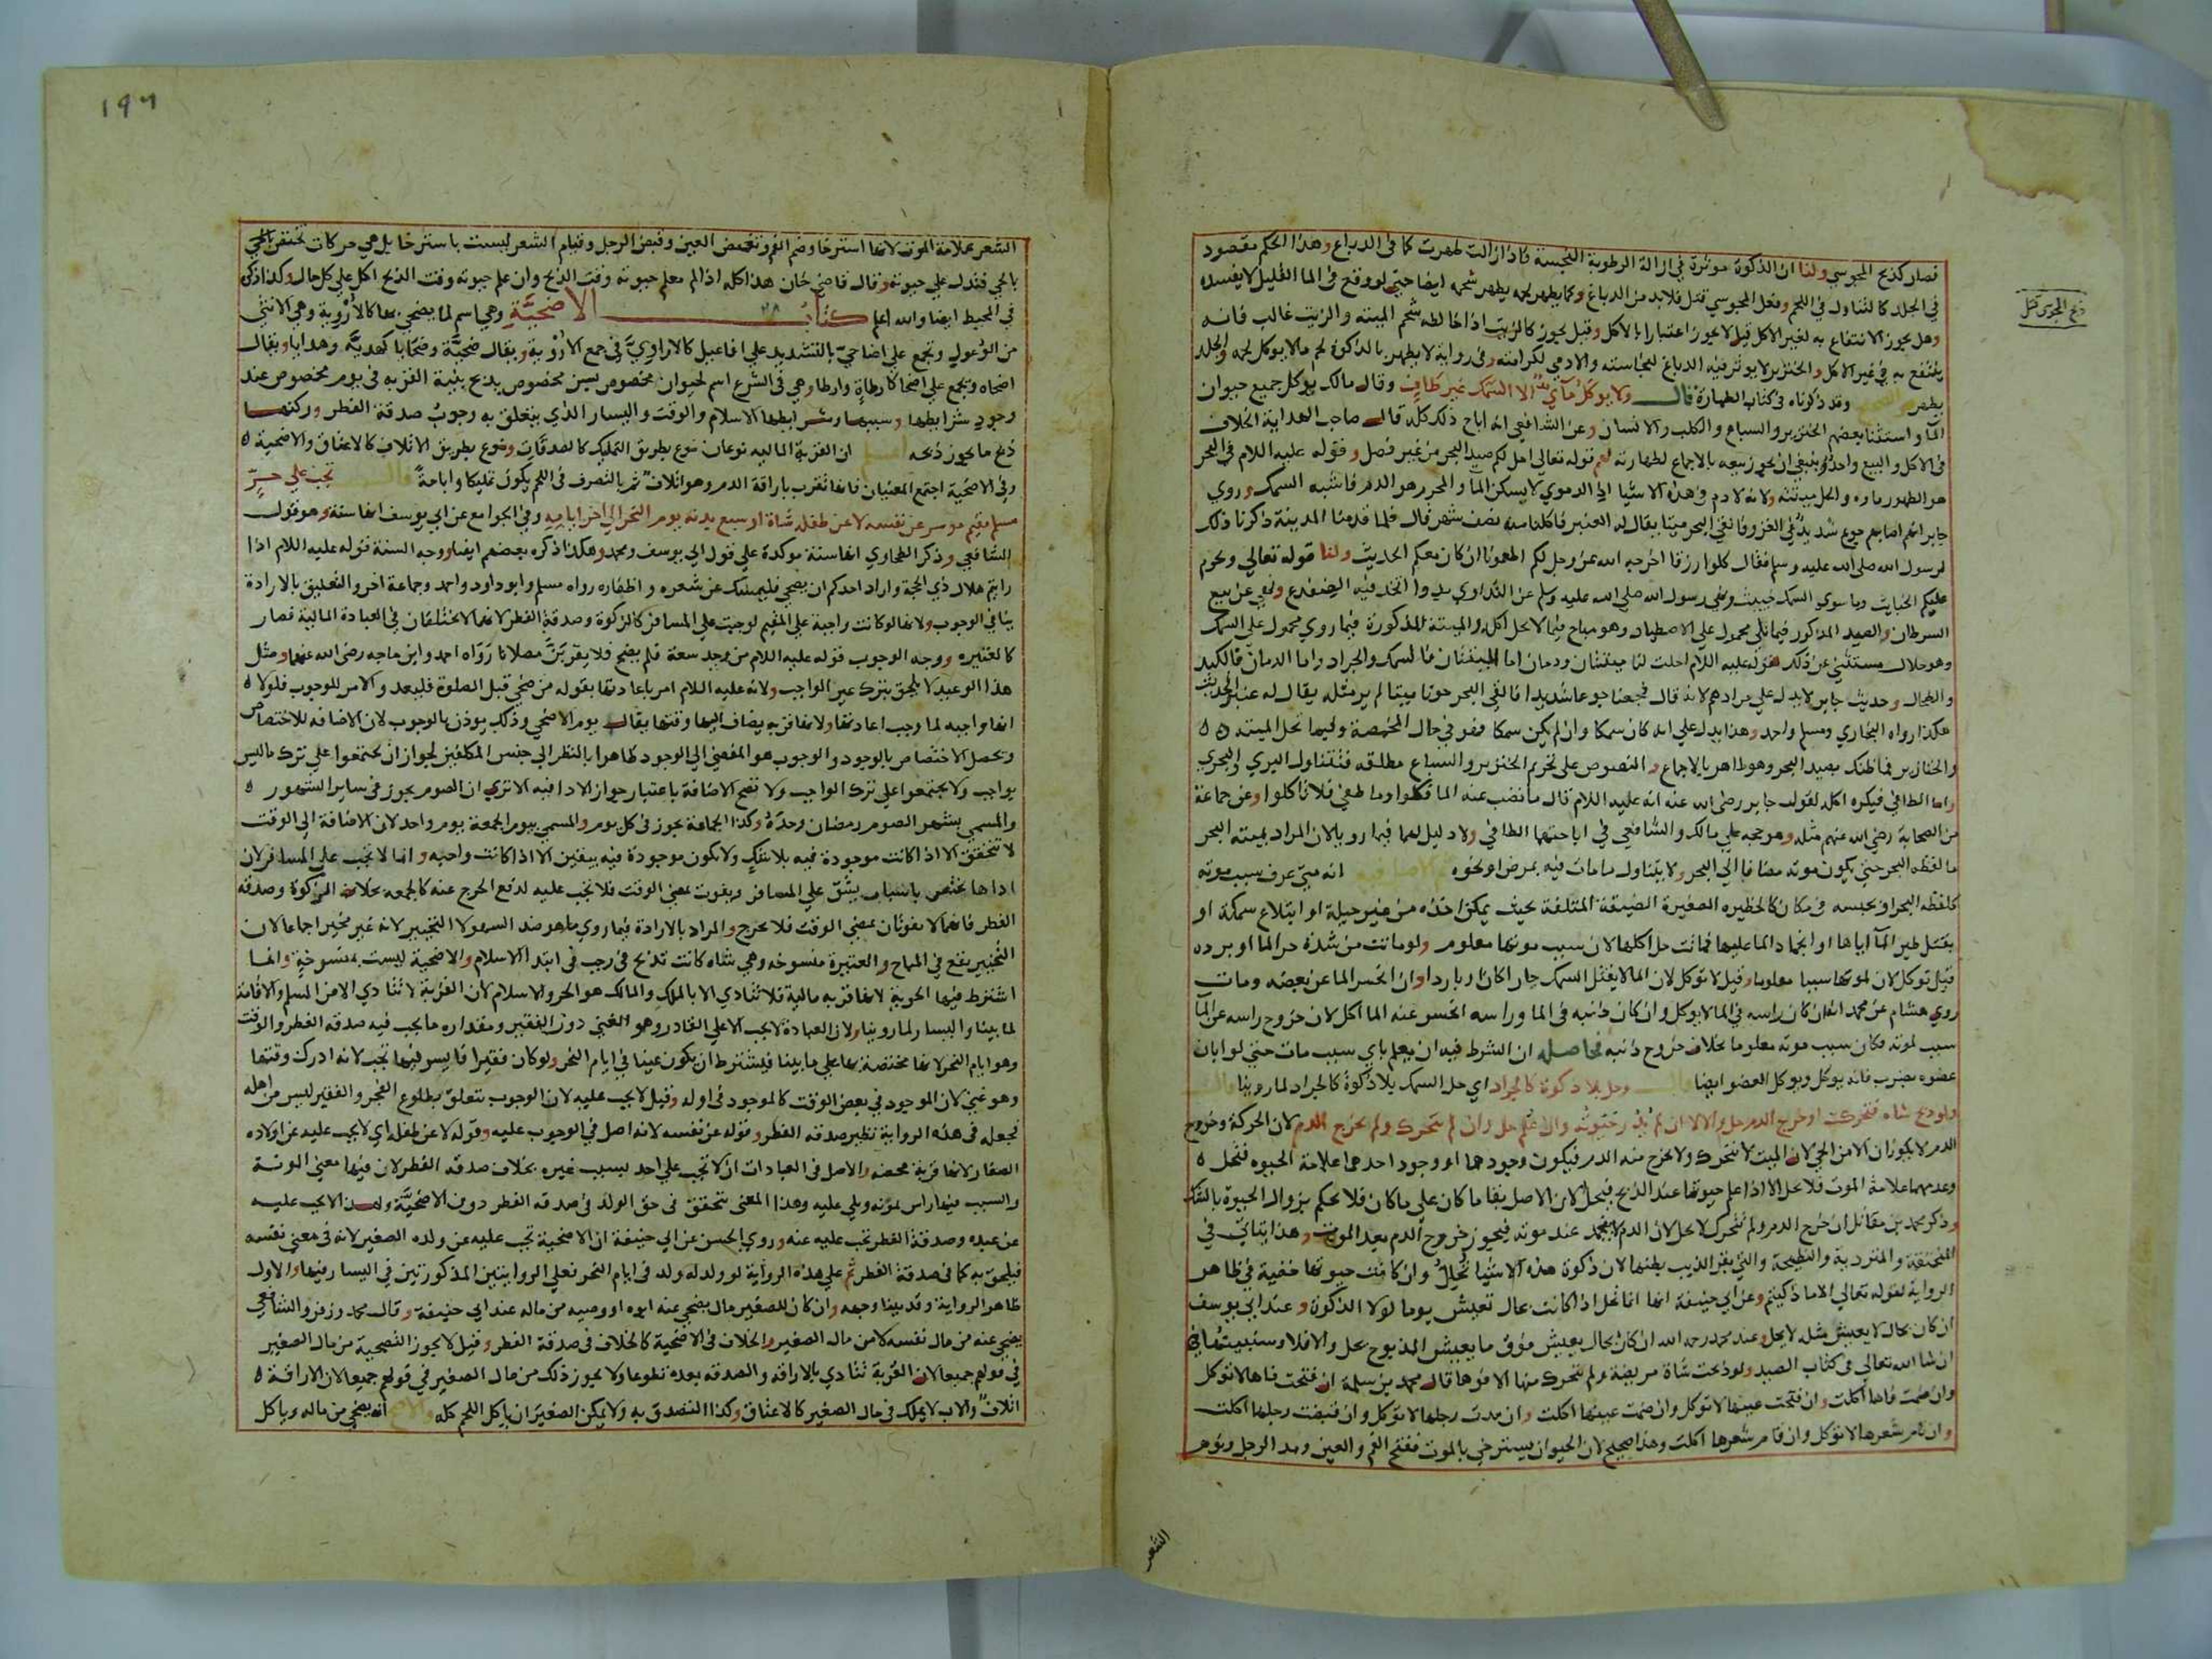 فصار كذبح المجوسي ولنا ان الذكوة موثرة في ازالة الرطوبة النجسة فاذا زالت طهرت كما في الدباغ وهذا الحكم مقصود
في الجلد كالتناول في اللحم وفعل المجوسي قتل فلا بد من الدباغ وكما يطهر لحمه يطهر شحمه ايضا حتى لو وقع في الما القليل لا يفسده
ذبح المجوسي قتل
وهل يجوز الانتفاع به لغير الاكل قيل لا يجوز اعتبارا بالاكل وقيل يجوز كالزيت اذا خالطه شحم الميتة والزيت غالب فانه
ينتفع به في غير الاكل والخنزير لا يوثر فيه الدباغ لنجاسته والادمي لكرامته وفي رواية لا يطهر بالذكوة لحم ما لا يوكل لحمه والجلد
يطهر وقد ذكرناه في كتاب الطهارة قال ولا يوكل مائي الا السمك غير طاف وقال مالك يوكل جميع حيوان
الما واستثنا بعضهم الخنزير والسباع والكلب والانسان وعن الشافعي انه اباح ذلك كله قال صاحب الهداية الخلاف
في الاكل والبيع واحد وينبغي ان يجوز بيعه بالاجماع لطهارته لهم قوله تعالى احل لكم صيد البحر من غير فصل وقوله عليه اللام في البحر
هو الطهور ماوه والحل ميتته ولانه لا دم في هذه الاشيا اذ الدموي لا يسكن الما والمحرم هو الدم فاشبه السمك وروي
جابر انهم اصابهم جوع شديد في الغزو فالقى البحر ميتا يقال له العنبر فاكلنا منه نصف شهر قال فلما قدمنا المدينة ذكرنا ذلك
لرسول الله صلى الله عليه وسلم فقال كلوا رزقا اخرجه الله عز وجل لكم اطعمونا ان كان معكم الحديث ولنا قوله تعالى ويحرم
عليكم الخبايث وما سوى السمك خبيث ونهى رسول الله صلى الله عليه وسلم عن التداوي بدوا اتخذ فيه الضفدع ونهى عن بيع
السرطان والصيد المذكور فيما تلى محمول على الاصطياد وهو مباح فيما لا يحل اكله والميتة المذكورة فيما روي محمول على السمك
وهو حلال مستثنى عن ذلك لقوله عليه اللام احلت لنا ميتتان ودمان اما الميتتان فالسمك والجراد واما الدمان فالكبد
والطحال وحديث جابر لا يدل على مرادهم لانه قال فجعنا جوعا شديدا فالقى البحر حوتا ميتا لم ير مثله يقال له عنبر الحديث
هكذا رواه البخاري ومسلم واحمد وهذا يدل على انه كان سمكا وان لم يكن سمكا فهو في حال المخمصة وفيها تحل الميتة
والخنازير فما ظنك بصيد البحر وهو طاهر بالاجماع والنصوص على تحريم الخنزير والسباع مطلقه فتتناول البري والبحري
واما الطافي فيكره اكله لقول جابر رضي الله عنه انه عليه اللام قال ما نضب عنه الما فكلوا وما طفى فلا تاكلوا وعن جماعة
من الصحابة رضي الله عنهم مثله وهو حجة على مالك والشافعي في اباحتهما الطافي ولا دليل لهما فيما رويا لان المراد بميتة البحر
ما لفظه البحر حتى يكون موته مضافا الى البحر ولا يتناول ما مات فيه بمرض او نحوه انه متى عرف سبب موته
كلفظه البحر او بحبسه في مكان كالحظيره الصغيرة الضيقة المتلفة بحيث يمكن اخذه من غير حيلة او ابتلاع سمكة او
بقتل طير الما اياها او انجماد الما عليها فماتت حل اكلها لان سبب موتها معلوم ولو ماتت من شدة حر الما او برده
قيل توكل لان لموتها سببا معلوما وقيل لا توكل لان الما لا يقتل السمك حارا كان او باردا وان انحسر الما عن بعضه ومات
روى هشام عن محمد انه ان كان راسه في الما لا يوكل وان كان ذنبه في الما وراسه انحسر عنه الما اكل لان خروج راسه عن الما
سبب لموته فكان سبب موته معلوما بخلاف خروج ذنبه فحاصله ان الشرط فيه ان يعلم باي سبب مات حتى لو ابان
عضوه بضرب فانه يوكل ويوكل العضو ايضا قال وحل بلا ذكوة كالجراد اي حل السمك بلا ذكوة كالجراد لما روينا
ولو ذبح شاة فتحركت او خرج الدم حل والا لا ان لم يدر حيوته وان علم حل وان لم يتحرك ولم يخرج الدم لان الحركة وخروج
الدم لا يكونان الا من الحي لان الميت لا يتحرك ولا يخرج منه الدم فيكون وجودهما او وجود احدهما علامة الحيوه فتحل
وعدمهما علامة الموت فلا تحل الا اذا علم حيوتها عند الذبح فيحل لان الاصل بقا ما كان على ما كان فلا يحكم بزوال الحيوة بالشك
وذكر محمد بن مقاتل ان خرج الدم ولم تتحرك لا يحل لان الدم لا ينجمد عند موته فيجوز خروج الدم بعد الموت وهذا يتاتى في
المنخنقة والمتردية والنطيحة والتي بقر الذيب بطنها لان ذكوة هذه الاشيا تحلل وان كانت حيوتها خفية في ظاهر
الرواية لقوله تعالى الا ما ذكيتم وعن ابي حنيفة انها انما تحل اذا كانت بحال تعيش يوما لولا الذكوة وعند ابي يوسف
ان كان بحال لا يعيش مثله لا يحل وعند محمد رحمه الله ان كان بحال يعيش فوق ما يعيش المذبوح يحل والا فلا وسنبينها
ان شا الله تعالى في كتاب الصيد ولو ذبحت شاة مريضة ولم تتحرك منها الا فوها قال محمد بن سلمة ان فتحت فاها لا توكل
وان ضمت فاها اكلت وان فتحت عينها لا توكل وان ضمت عينها اكلت وان مدت رجلها لا توكل وان قبضت رجلها اكلت
وان نام شعرها لا توكل وان قام شعرها اكلت وهذا صحيح لان الحيوان يسترخي بالموت ففتح الفم والعين ومد الرجل ونوم
الشعر
١٩٦
الشعر علامة الموت لانها استرخا وضم الفم وتغميض العين وقبض الرجل وقيام الشعر ليست باسترخا بل هي حركات تختص بالحي
بالحي فتدل على حيوته وقال قاضي خان هذا كله اذا لم يعلم حيوته وقت الذبح وان علم حيوته وقت الذبح اكل على كل حال وكذا ذكر
في المحيط ايضا والله اعلم كتاب الاضحية وهي اسم لما يضحى بها كالاروية وهي الانثى
من الوعول وتجمع على اضاحي بالتشديد على افاعيل كالاراوي في جمع الاروية ويقال ضحية وضحايا كهدية وهدايا ويقال
اضحاه ويجمع على اضحا كارطاة وارطا وهي في الشرع اسم لحيوان مخصوص بسن مخصوص يذبح بنية القربة في يوم مخصوص عند
وجود شرايطها وسببها وشرايطها الاسلام والوقت واليسار الذي يتعلق به وجوب صدقة الفطر وركنها
ذبح ما يجوز ذبحه اعلم ان القربة المالية نوعان نوع بطريق التمليك كالصدقات ونوع بطريق الاتلاف كالاعتاق والاضحية
وفي الاضحية اجتمع المعنيان فانها تقرب باراقة الدم وهو اتلاف ثم بالتصرف في اللحم يكون تمليكا واباحة قال تجب على حر
مسلم مقيم موسر عن نفسه لا عن طفله شاة او سبع بدنه يوم النحر الى اخر ايامه وفي الجوامع عن ابي يوسف انها سنة وهو قول
الشافعي وذكر الطحاوي انها سنة موكدة على قول ابي يوسف ومحمد وهكذا ذكره بعضهم ايضا ووجه السنة قوله عليه اللام اذا
رايتم هلال ذي الحجة واراد احدكم ان يضحي فليمسك عن شعره واظفاره رواه مسلم وابو داود واحمد وجماعة اخر والتعليق بالارادة
ينافي الوجوب ولانها لو كانت واجبة على المقيم لوجبت على المسافر كالزكوة وصدقة الفطر لانهما لا يختلفان في العبادة المالية فصار
كالعتيره ووجه الوجوب قوله عليه اللام من وجد سعة فلم يضح فلا يقربن مصلانا رواه احمد وابن ماجه رضي الله عنهما ومثل
هذا الوعيد لا يلحق بترك غير الواجب ولانه عليه اللام امر باعادتها بقوله من ضحى قبل الصلوة فليعد والامر للوجوب فلولا
انها واجبة لما وجب اعادتها ولانها قربه يضاف اليها وقتها يقال يوم الاضحى وذلك يوذن بالوجوب لان الاضافه للاختصاص
وتحصل الاختصاص بالوجود والوجوب هو المفضي الى الوجود ظاهرا بالنظر الى جنس المكلفين لجواز ان يجتمعوا على ترك ما ليس
بواجب ولا يجتمعوا على ترك الواجب ولا تصح الاضافة باعتبار جواز الادا فيه الا ترى ان الصوم يجوز في ساير الشهور
والمسمى بشهر الصوم رمضان وحده وكذا الجماعة يجوز في كل يوم والمسمى بيوم الجمعة يوم واحد لان الاضافة الى الوقت
لا تتحقق الا اذا كانت موجودة فيه بلا شك ولا يكون موجودة فيه بيقين الا اذا كانت واجبه وانما لا تجب على المسافر لان
اداها يختص باسباب يشق على المسافر ويفوت بمضي الوقت فلا تجب عليه لدفع الحرج عنه كالجمعه بخلاف الزكوة وصدقة
الفطر فانهما لا يفوتان بمضي الوقت فلا يحرج والمراد بالارادة فيما روي ما هو ضد السهو لا التخيير لانه غير مخير اجماعا لان
التخيير يقع في المباح والعتيرة منسوخه وهي شاه كانت تذبح في رجب في ابتدا الاسلام والاضحية ليست بمنسوخة وانما
اشترط فيها الحرية لانها قربة مالية فلا تتادي الا بالملك والمالك هو الحر والاسلام لان القربة لا تتادي الا من المسلم والاقامة
لما بينا واليسار لما روينا ولان العبادة لا يجب الا على القادر وهو الغني دون الفقير ومقداره ما يجب فيه صدقة الفطر والوقت
وهو ايام النحر لانها مختصة بها على ما بينا فيشترط ان يكون غنيا في ايام النحر ولو كان فقيرا فايسر فيها تجب لانه ادرك وقتها
وهو غني لان الموجود في بعض الوقت كالموجود في اوله وقيل لا يجب عليه لان الوجوب يتعلق بطلوع الفجر والفقير ليس من اهله
فجعله في هذه الرواية نظير صدقة الفطر وقوله عن نفسه لانه اصل في الوجوب عليه وقوله لا عن طفله اي لا يجب عليه عن اولاده
الصغار لانها قربة محضه والاصل في العبادات ان لا تجب على احد بسبب غيره بخلاف صدقة الفطر لان فيها معنى المونة
والسبب فيها راس يمونه ويلي عليه وهذا المعنى يتحقق في حق الولد في صدقة الفطر دون الاضحية ولهذا لا يجب عليه
عن عبده وصدقة الفطر تجب عليه عنه وروى الحسن عن ابي حنيفة ان الاضحية تجب عليه عن ولده الصغير لانه في معنى نفسه
فيلحق به كما في صدقة الفطر ثم على هذه الرواية لو ولد له ولد في ايام النحر فعلى الروايتين المذكورتين في اليسار فيها والاول
ظاهر الرواية وقد بينا وجهه وان كان للصغير مال يضحي عنه ابوه او وصيه من ماله عند ابي حنيفة وقال محمد وزفر والشافعي
يضحي عنه من مال نفسه لا من مال الصغير والخلاف في الاضحية كالخلاف في صدقة الفطر وقيل لا يجوز التضحية من مال الصغير
في قولهم جميعا لان القربة تتادي بالاراقة والصدقة بعده تطوعا ولا يجوز ذلك من مال الصغير في قولهم جميعا لان الاراقة
اتلاف والاب لا يملك في مال الصغير كالاعتاق وكذا التصدق به ولا يمكن الصغير ان ياكل اللحم كله والاصح انه يضحي من ماله وياكل